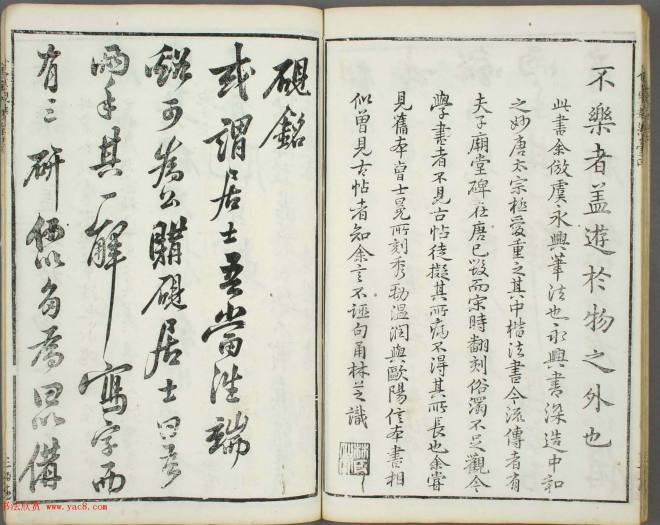 不樂者蓋遊於物之外也
此書余倣虞永興筆法也永興書深造中和
之妙唐太宗極愛重之其中楷法書今流傳者有
夫子廟堂碑在唐已毀而宋時翻刻俗濁不足觀今
學書者不見古帖徒擬其所病不得其所長也余嘗
見舊本曾士冕所刻秀勁温润與歐陽信本書相
似曾見古帖者知余言不誣句甬林芝識
硯銘
或謂居士吾當往端
谿可為公購硯居士曰吾
兩手其一解寫字而
有三研何以多為曰以備
书法欣赏 www.yac8.com